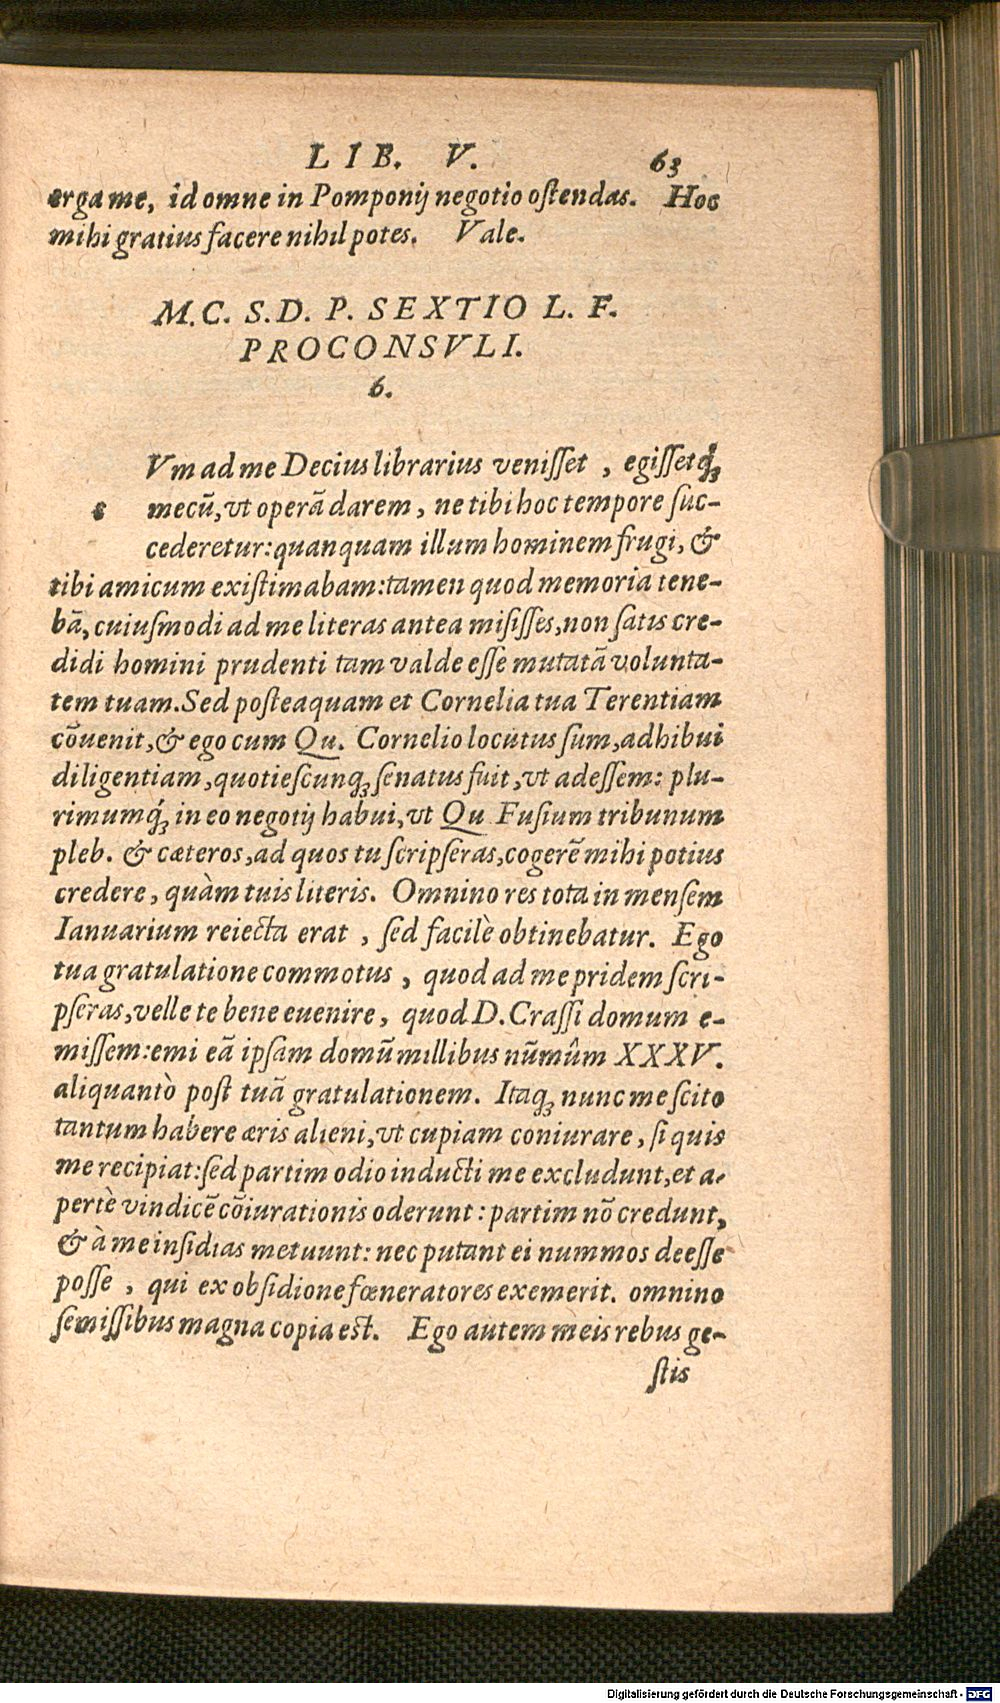 LIB. V. 63
erga me, id omne in Pomponij negotio oſtendas. Hoc
mihi gratius facere nihil potes. Vale.
M. C. S. D. P. SEXTIO L. F.
PROCONSVLI.
6.
Vm ad me Decius librarius veniſſet , egiſſetq́ꝫ
c mecū, vt operā darem, ne tibi hoc tempore ſuc-
cederetur: quanquam illum hominem frugi, &
tibi amicum exiſtimabam: tamen quod memoria tene-
bā, cuiuſmodi ad me literas antea miſiſſes, non ſatis cre-
didi homini prudenti tam valde eſſe mutatā volunta-
tem tuam. Sed poſteaquam et Cornelia tua Terentiam
cōuenit, & ego cum Qu. Cornelio locutus ſum, adhibui
diligentiam, quotieſcunqꝫ ſenatus fuit, vt adeſſem: plu-
rimumq́ꝫ in eo negotij habui, vt Qu Fuſium tribunum
pleb. & cæteros, ad quos tu ſcripſeras, cogerē mihi potius
credere, quàm tuis literis. Omnino res tota in menſem
Ianuarium reiecta erat , ſed facilè obtinebatur. Ego
tua gratulatione commotus , quod ad me pridem ſcri-
pſeras, velle te bene euenire, quod D. Craſſi domum e-
miſſem: emi eā ipſam domū millibus nūmûm XXXV.
aliquantò poſt tuā gratulationem. Itaqꝫ nunc me ſcito
tantum habere æris alieni, vt cupiam coniurare, ſi quis
me recipiat: ſed partim odio inducti me excludunt, et a-
pertè vindicē cōiurationis oderunt: partim nō credunt,
& à me inſidias metuunt: nec putant ei nummos deeſſe
poſſe , qui ex obſidione fœneratores exemerit. omnino
ſemiſſibus magna copia eſt. Ego autem meis rebus ge-
ſtis
Digitalisierung gefördert durch die Deutsche Forschungsgemeinschaft - DFG